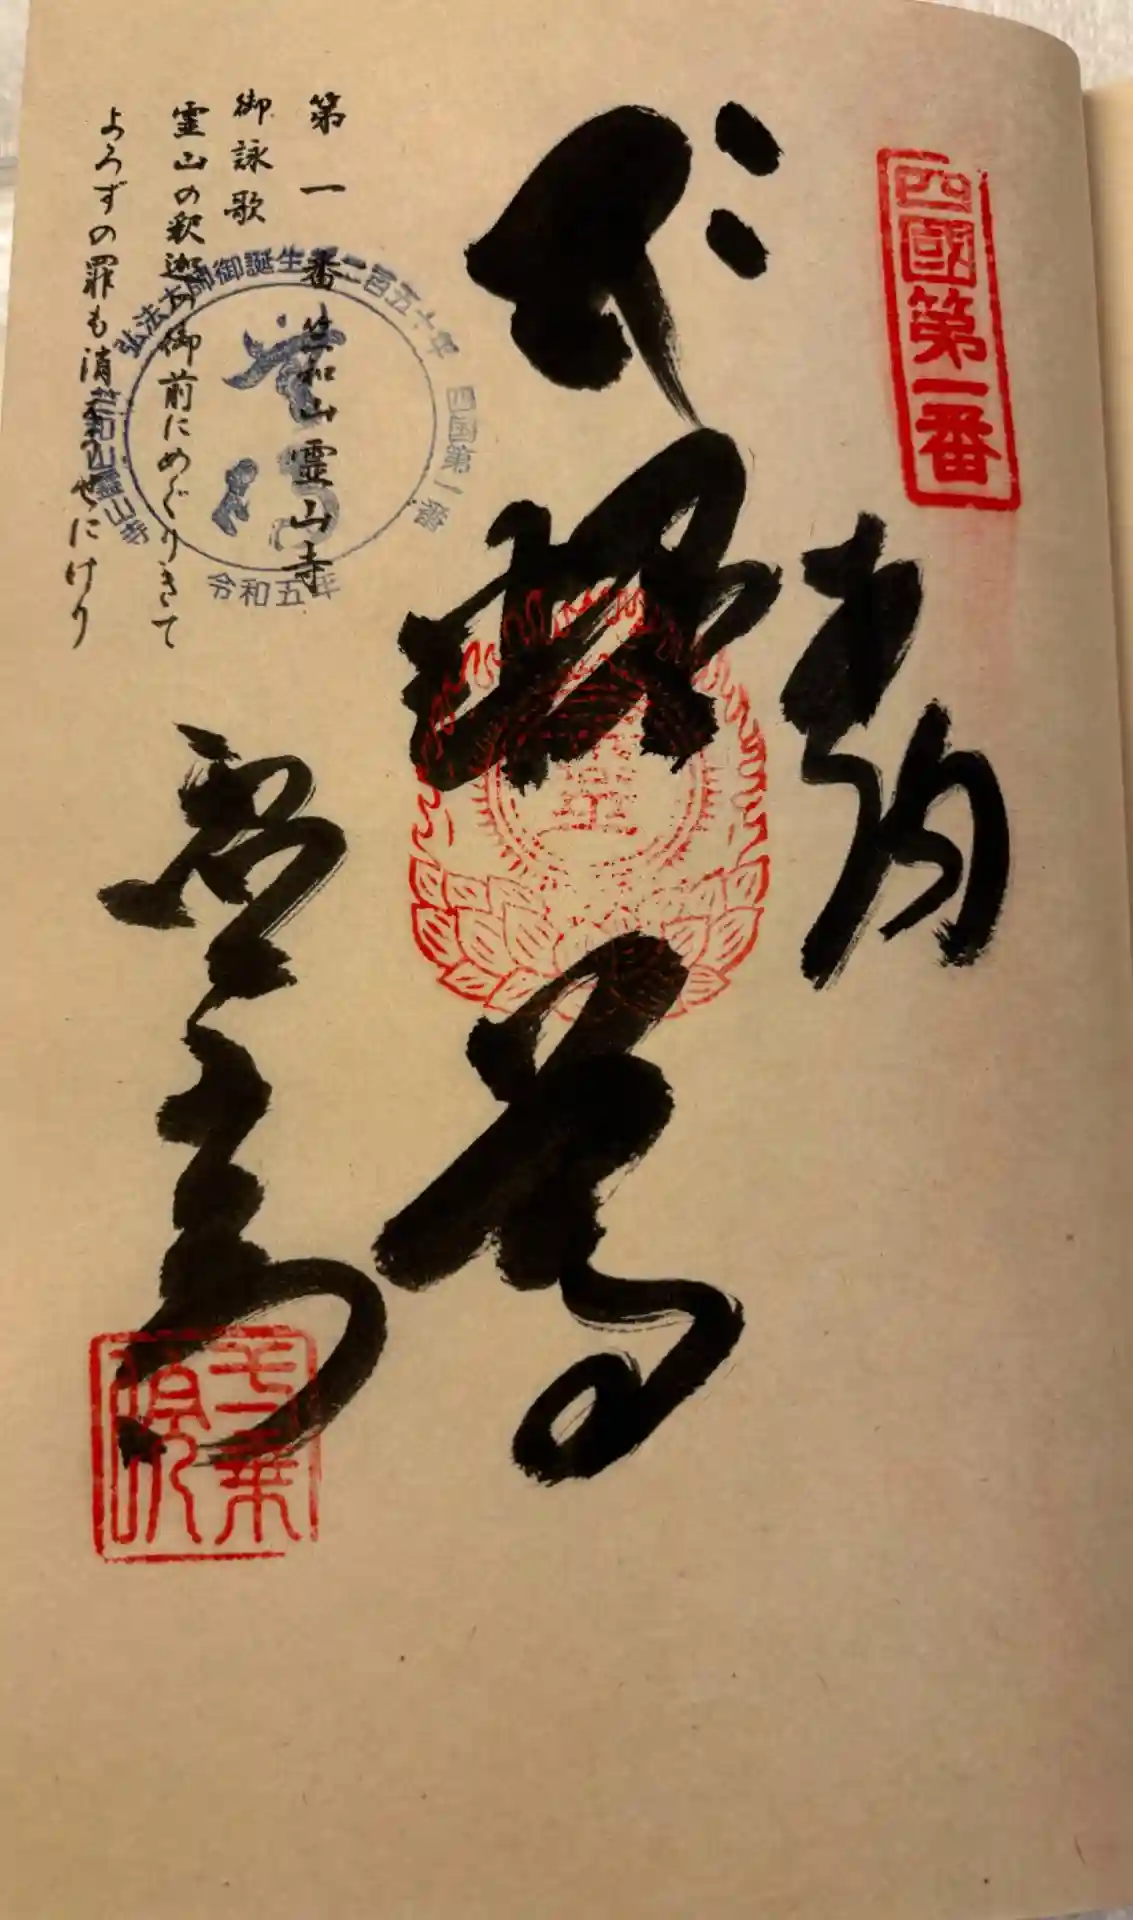 四國第一番
奉納
釈迦如来
霊山寺
第一番竺和山霊山寺
御詠歌
霊山の釈迦の御前にめぐりきて
よろずの罪も消えうせにけり
弘法大師御誕生千二百五十年
四国第一番
竺和山霊山寺
令和五年
一乗院